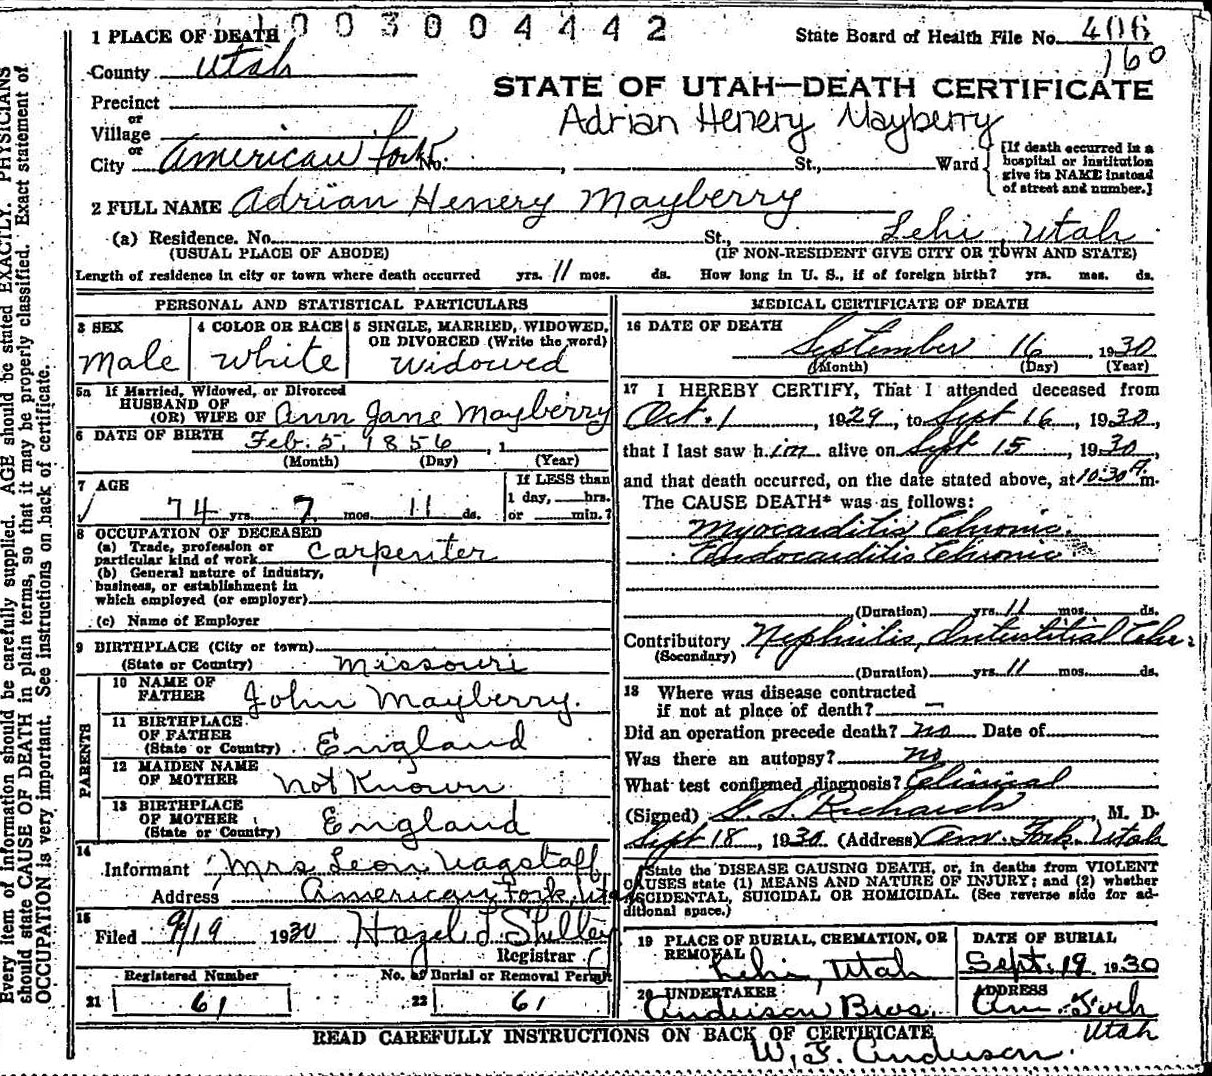 1003004442
1 PLACE OF DEATH
State Board of Health File No. 406
160
County Utah
STATE OF UTAH—DEATH CERTIFICATE
Precinct
or
Adrian Henery Mayberry
Village
or
City American Fork No. , St., Ward
[If death occurred in a hospital or institution give its NAME instead of street and number.]
2 FULL NAME Adrian Henery Mayberry
(a) Residence. No. St., Lehi, Utah
(USUAL PLACE OF ABODE) (IF NON-RESIDENT GIVE CITY OR TOWN AND STATE)
Length of residence in city or town where death occurred yrs. 11 mos. ds. How long in U. S., if of foreign birth? yrs. mos. ds.
PERSONAL AND STATISTICAL PARTICULARS
3 SEX
Male
4 COLOR OR RACE
White
5 SINGLE, MARRIED, WIDOWED, OR DIVORCED (Write the word)
Widowed
5a If Married, Widowed, or Divorced
HUSBAND OF
(OR) WIFE OF Ann Jane Mayberry
6 DATE OF BIRTH Feb. 5, 1856, 1
(Month) (Day) (Year)
7 AGE
74 yrs. 7 mos. 11 ds.
If LESS than
1 day, hrs.
or min.?
8 OCCUPATION OF DECEASED
(a) Trade, profession or
particular kind of work Carpenter
(b) General nature of industry,
business, or establishment in
which employed (or employer)
(c) Name of Employer
9 BIRTHPLACE (City or town)
(State or Country) Missouri
PARENTS
10 NAME OF
FATHER John Mayberry.
11 BIRTHPLACE
OF FATHER
(State or Country) England
12 MAIDEN NAME
OF MOTHER Not Known
13 BIRTHPLACE
OF MOTHER
(State or Country) England
14
Informant Mrs. Leon Wagstaff
Address American Fork, Utah
15
Filed 9/19 1930 Hazel L Shelley
Registrar
Registered Number No. of Burial or Removal Permit
21 61 22 61
MEDICAL CERTIFICATE OF DEATH
16 DATE OF DEATH
September 16, 1930
(Month) (Day) (Year)
17 I HEREBY CERTIFY, That I attended deceased from
Oct. 1, 1929, to Sept 16, 1930,
that I last saw him alive on Sept 15, 1930,
and that death occurred, on the date stated above, at 10:30 A.m.
The CAUSE DEATH* was as follows:
Myocarditis, Chronic.
Endocarditis Chronic
(Duration) yrs. 11 mos. ds.
Contributory Nephritis, Interstitial Chr.
(Secondary)
(Duration) yrs. 11 mos. ds.
18 Where was disease contracted
if not at place of death? —
Did an operation precede death? no Date of
Was there an autopsy? no
What test confirmed diagnosis? Clinical
(Signed) G. S. Richards, M. D.
Sept 18, 1930 (Address) Am. Fork. Utah
State the DISEASE CAUSING DEATH, or, in deaths from VIOLENT
CAUSES state (1) MEANS AND NATURE OF INJURY; and (2) whether
ACCIDENTAL, SUICIDAL OR HOMICIDAL. (See reverse side for ad-
ditional space.)
19 PLACE OF BURIAL, CREMATION, OR
REMOVAL
Lehi, Utah
DATE OF BURIAL
Sept. 19, 1930
20 UNDERTAKER
Anderson Bros.
ADDRESS
Am. Fork
Utah
READ CAREFULLY INSTRUCTIONS ON BACK OF CERTIFICATE
W. F. Anderson.
Every item of information should be carefully supplied. AGE should be stated EXACTLY. PHYSICIANS
should state CAUSE OF DEATH in plain terms, so that it may be properly classified. Exact statement of
OCCUPATION is very important. See instructions on back of certificate.